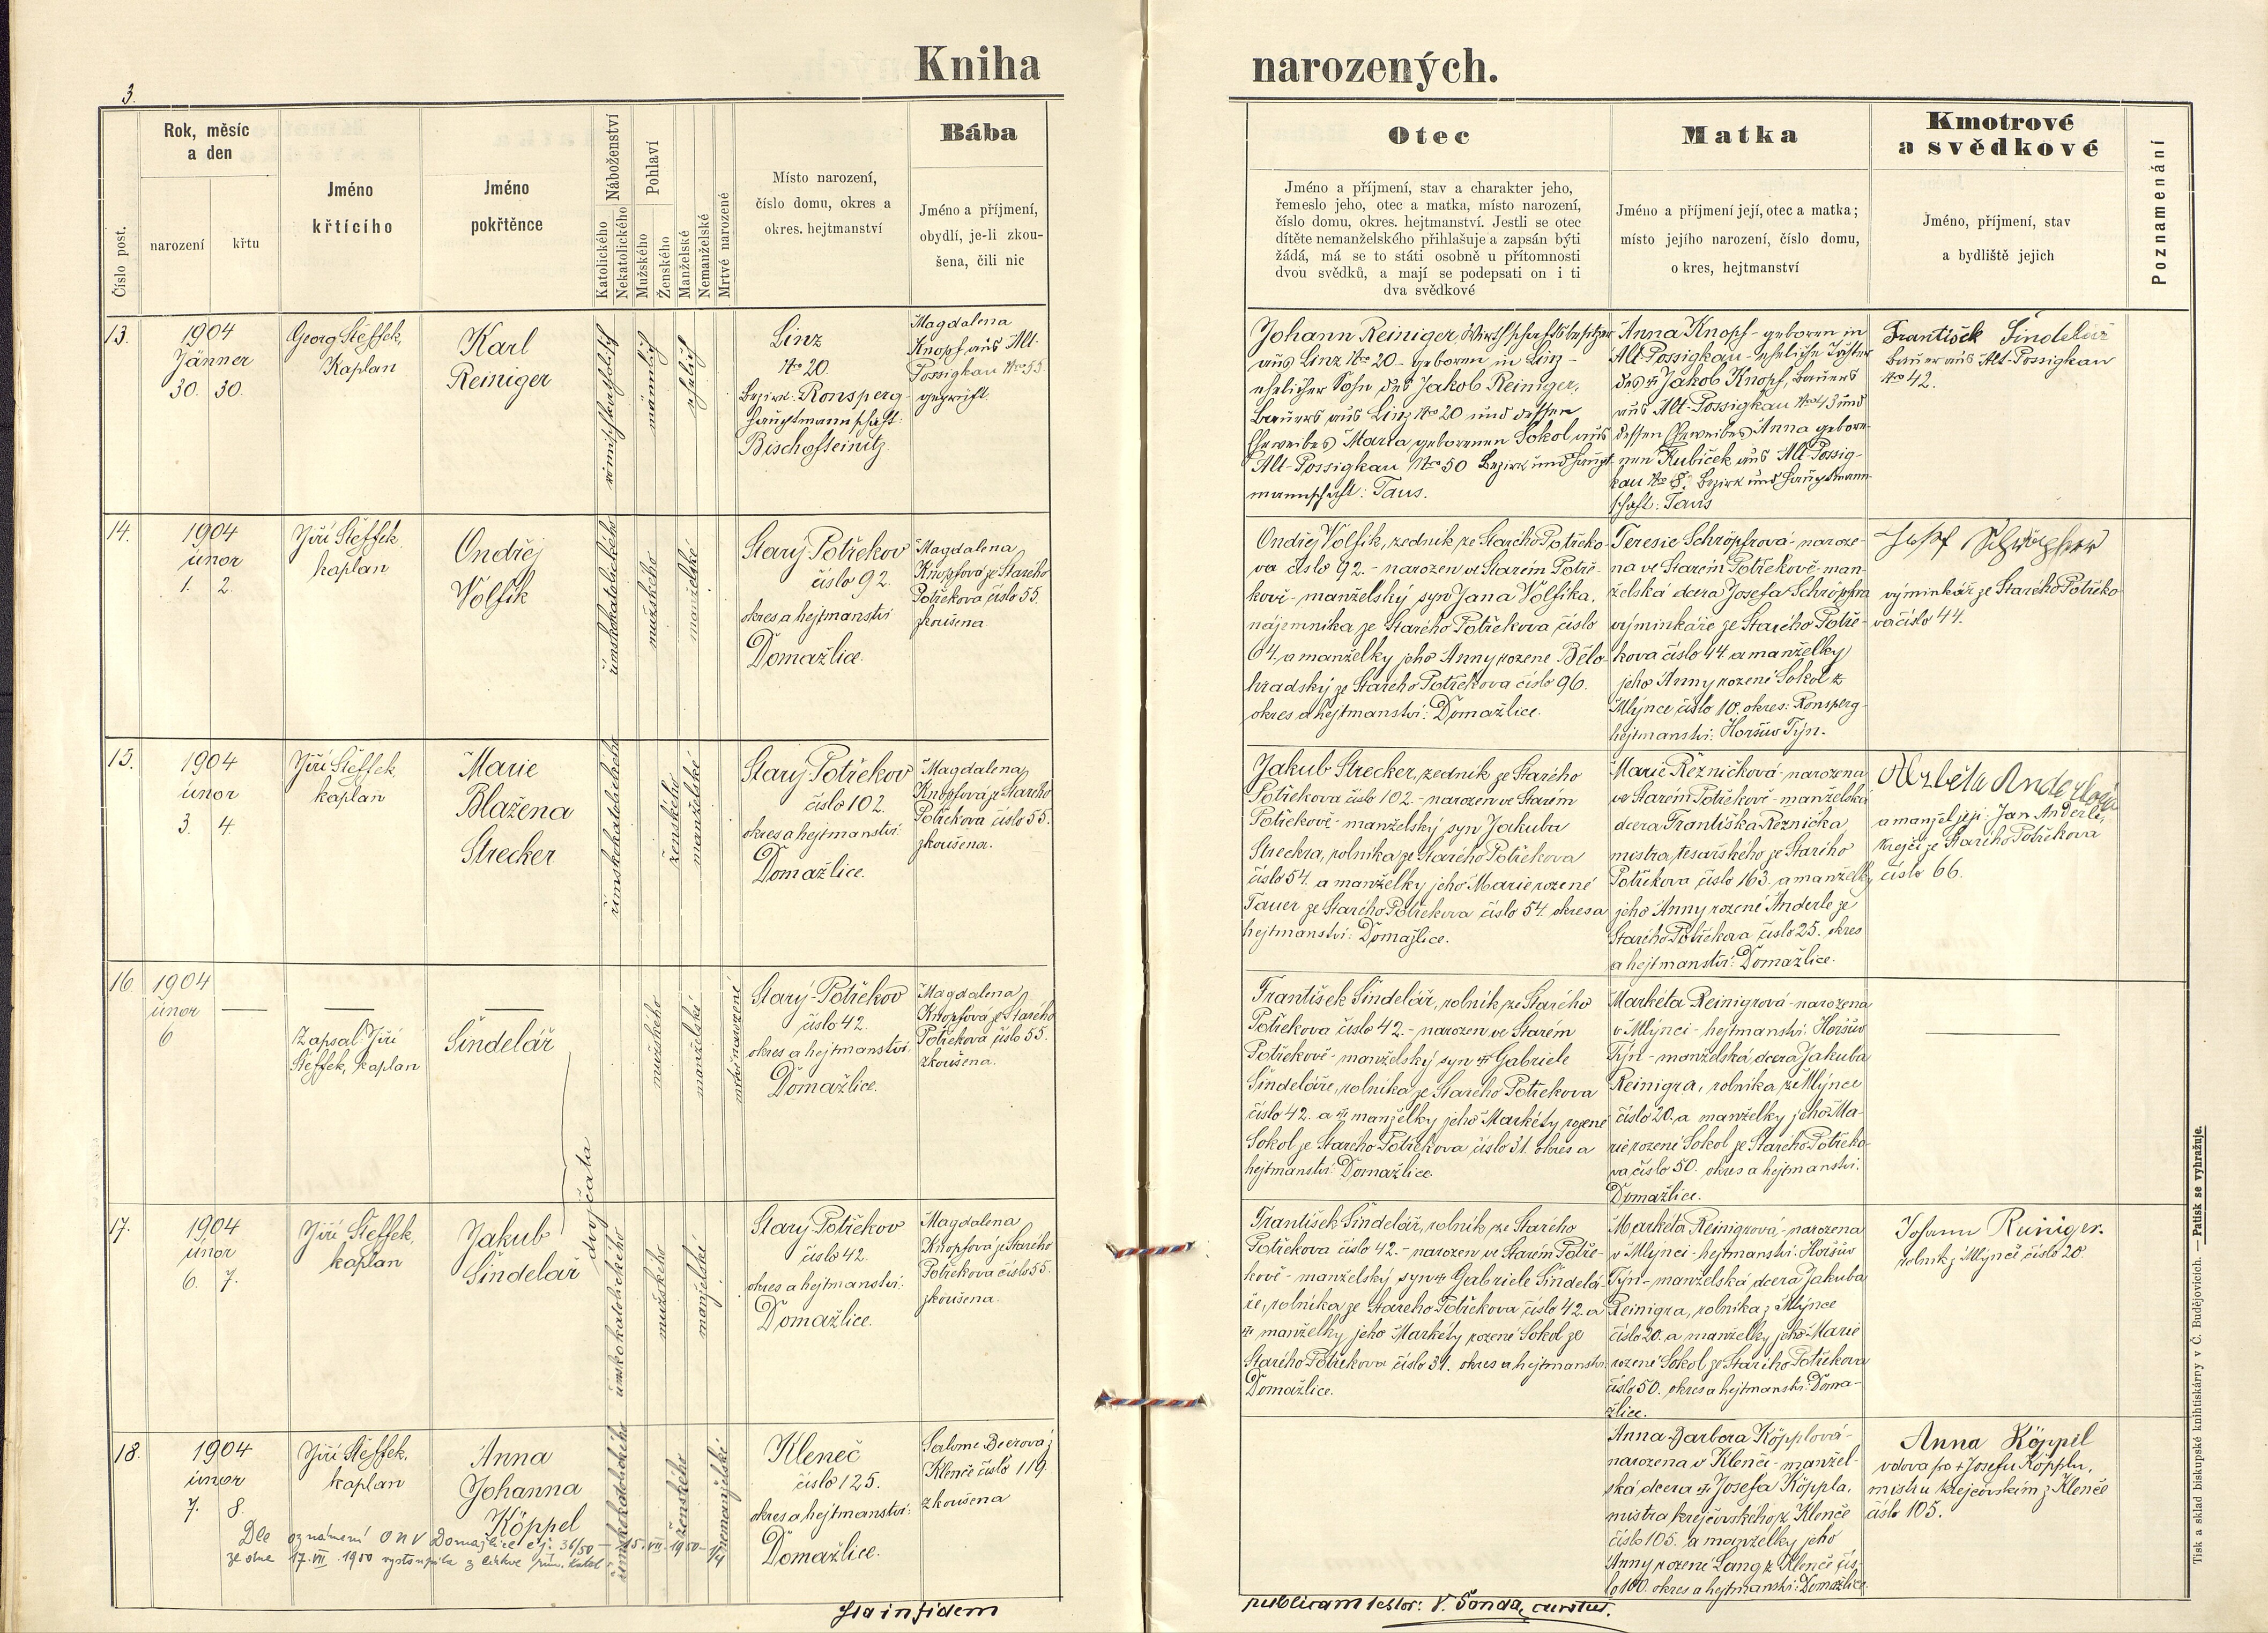 Kniha narozených.
3.
Číslo post.
Rok, měsíc
a den
narození
křtu
Jméno
křtícího
Jméno
pokřtěnce
Náboženství
Katolického
Nekatolického
Pohlaví
Mužského
Ženského
Manželské
Nemanželské
Mrtvé narozené
Místo narození,
číslo domu, okres a
okres. hejtmanství
Bába
Jméno a příjmení,
obydlí, je-li zkou-
šena, čili nic
Otec
Jméno a příjmení, stav a charakter jeho,
řemeslo jeho, otec a matka, místo narození,
číslo domu, okres. hejtmanství. Jestli se otec
dítěte nemanželského přihlašuje a zapsán býti
žádá, má se to státi osobně u přítomnosti
dvou svědků, a mají se podepsati on i ti
dva svědkové
Matka
Jméno a příjmení její, otec a matka;
místo jejího narození, číslo domu,
okres, hejtmanství
Kmotrové
a svědkové
Jméno, příjmení, stav
a bydliště jejich
Poznamenání
13.
1904
Jänner
30. 30.
Georg Šteffek,
Kaplan
Karl
Reiniger
römischkatholisch
männlich
ehelich
Linz
Nro 20.
Bezirk: Ronsperg
Hauptmannschaft:
Bischofteinitz
Magdalena
Knopf aus Alt-
Possigkau Nro 55.
geprüft.
Johann Reiniger, Wirthschaftsbesitzer
aus Linz Nro 20 - geboren in Linz -
ehelicher Sohn des Jakob Reiniger,
Bauers aus Linz Nro 20 und dessen
Eheweibes Maria geborenen Sokol aus
Alt-Possigkau Nro 50 Bezirk und Haupt-
mannschaft: Taus.
Anna Knopf - geboren in
Alt-Possigkau - eheliche Tochter
des † Jakob Knopf, Bauers
aus Alt-Possigkau Nro 43 und
dessen Eheweibes Anna gebore-
nen Kubiček aus Alt-Possig-
kau Nro 8. Bezirk und Hauptmann-
schaft: Taus
František Šindelář
Bauer aus Alt-Possigkau
Nro 42.
14.
1904
únor
1. 2.
Jiří Šteffek
kaplan
Ondřej
Volfík
římskokatolického
mužského
manželské
Starý-Potřekov
číslo 92.
okres a hejtmanství
Domažlice.
Magdalena
Knopfová ze Starého
Potřekova číslo 55.
zkoušena
Ondřej Volfík, zedník ze Starého Potřeko-
va číslo 92. - narozen ve Starém Potře-
kově - manželský syn Jana Volfíka,
nájemníka ze Starého Potřekova číslo
64. a manželky jeho Anny rozené Bělo-
hradský ze Starého Potřekova číslo 96.
okres a hejtmanství: Domažlice.
Teresie Schröpfrová - naroze-
na ve Starém Potřekově - man-
želská dcera Josefa Schröpfra
výminkáře ze Starého Potře-
kova číslo 44. a manželky
jeho Anny rozené Sokol z
Mlýnce číslo 10. okres: Ronsperg
hejtmanství: Horšův Týn.
Josef
výminkář ze Starého Potřeko
va číslo 44.
15.
1904
únor
3. 4.
Jiří Šteffek,
kaplan
Marie
Blažena
Strecker
římskokatolického
ženského
manželské
Starý-Potřekov
číslo 102.
okres a hejtmanství:
Domažlice.
Magdalena
Knopfová ze Starého
Potřekova číslo 55.
zkoušena.
Jakub Strecker, zedník ze Starého
Potřekova číslo 102. - narozen ve Starém
Potřekově - manželský syn Jakuba
Streckra, rolníka ze Starého Potřekova
číslo 54. a manželky jeho Marie rozené
Tauer ze Starého Potřekova číslo 54. okres a
hejtmanství: Domažlice.
Marie Řezníčková - narozena
ve Starém Potřekově - manželská
dcera Františka Řezníčka
mistra tesařského ze Starého
Potřekova číslo 163. a manželky
jeho Anny rozené Anderle ze
Starého Potřekova číslo 25. okres
a hejtmanství: Domažlice.
Alzběta Anderlová
a manžel její: Jan Anderle,
krejčí ze Starého Potřekova
číslo 66.
16.
1904
únor
6
Zapsal: Jiří
Šteffek, kaplan
Šindelář
dvojčata
mužského
manželské
mrtvě narozené
Starý-Potřekov
číslo 42.
okres a hejtmanství:
Domažlice.
Magdalena
Knopfová ze Starého
Potřekova číslo 55.
zkoušena.
František Šindelář, rolník ze Starého
Potřekova číslo 42. - narozen ve Starém
Potřekově - manželský syn † Gabriele
Šindeláře, rolníka ze Starého Potřekova
číslo 42. a † manželky jeho Markéty rozené
Sokol ze Starého Potřekova číslo 31. okres a
hejtmanství: Domažlice.
Markéta Reinigrová - narozena
v Mlýnci - hejtmanství: Horšův
Týn - manželská dcera Jakuba
Reinigra, rolníka ze Mlýnce
číslo 20. a manželky jeho Ma-
rie rozené Sokol ze Starého Potřeko-
va číslo 50. okres a hejtmanství:
Domažlice.
17.
1904
únor
6. 7.
Jiří Šteffek,
kaplan
Jakub
Šindelář
římskokatolického
mužského
manželské
Starý Potřekov
číslo 42.
okres a hejtmanství:
Domažlice.
Magdalena
Knopfová ze Starého
Potřekova číslo 55.
zkoušena.
František Šindelář, rolník ze Starého
Potřekova číslo 42. - narozen ve Starém Potře-
kově - manželský syn † Gabriele Šindelá-
ře, rolníka ze Starého Potřekova číslo 42. a
† manželky jeho Markéty rozené Sokol ze
Starého Potřekova číslo 31. okres a hejtmanství:
Domažlice.
Markéta Reinigrová - narozena
v Mlýnci - hejtmanství: Horšův
Týn - manželská dcera Jakuba
Reinigra, rolníka z Mlýnce
číslo 20. a manželky jeho Marie
rozené Sokol ze Starého Potřekova
číslo 50. okres a hejtmanství: Doma-
žlice.
Johann Reiniger.
rolník z Mlýnce číslo 20.
18.
1904
únor
7. 8.
Jiří Šteffek,
kaplan
Anna
Johanna
Köppel
římskokatolického
ženského
nemanželské
Kleneč
číslo 125.
okres a hejtmanství:
Domažlice.
Salome Beerová z
Klenče číslo 119.
zkoušena
Anna Barbora Köpplová -
narozena v Klenči - manžel-
ská dcera † Josefa Köppla,
mistra krejčovského z Klenče
číslo 105. a manželky jeho
Anny rozené Lang z Klenče čís-
lo 100. okres a hejtmanství: Domažlice.
Anna Köppel
vdova po † Josefu Köpplu,
mistru krejčovském z Klenče
číslo 105.
Dle oznámení ONV Domažlice čj. 36/50 - 15. VII. 1950 -
ze dne 17. VII. 1950 vystoupila z církve řím. katol.
Ita in fidem publicam testor: V. Šonda, curatus.
Tisk a sklad biskupské knihtiskárny v Č. Budějovicích. — Patisk se vyhražuje.